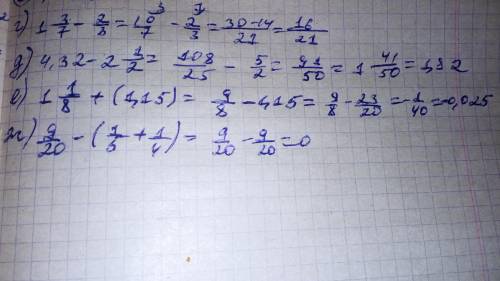 г) 1 3/7 - 2/3 = 10/7 ³ - 2/3 ⁷ = 30-14/21 = 16/21
д) 4,32 - 2 1/2 = 108/25 - 5/2 = 91/50 = 1 41/50 = 1,82
е) 1 1/8 + (1,15) = 9/8 - 1,15 = 9/8 - 23/20 = -1/40 = -0,025
ж) 9/20 - (1/5 + 1/4) = 9/20 - 9/20 = 0